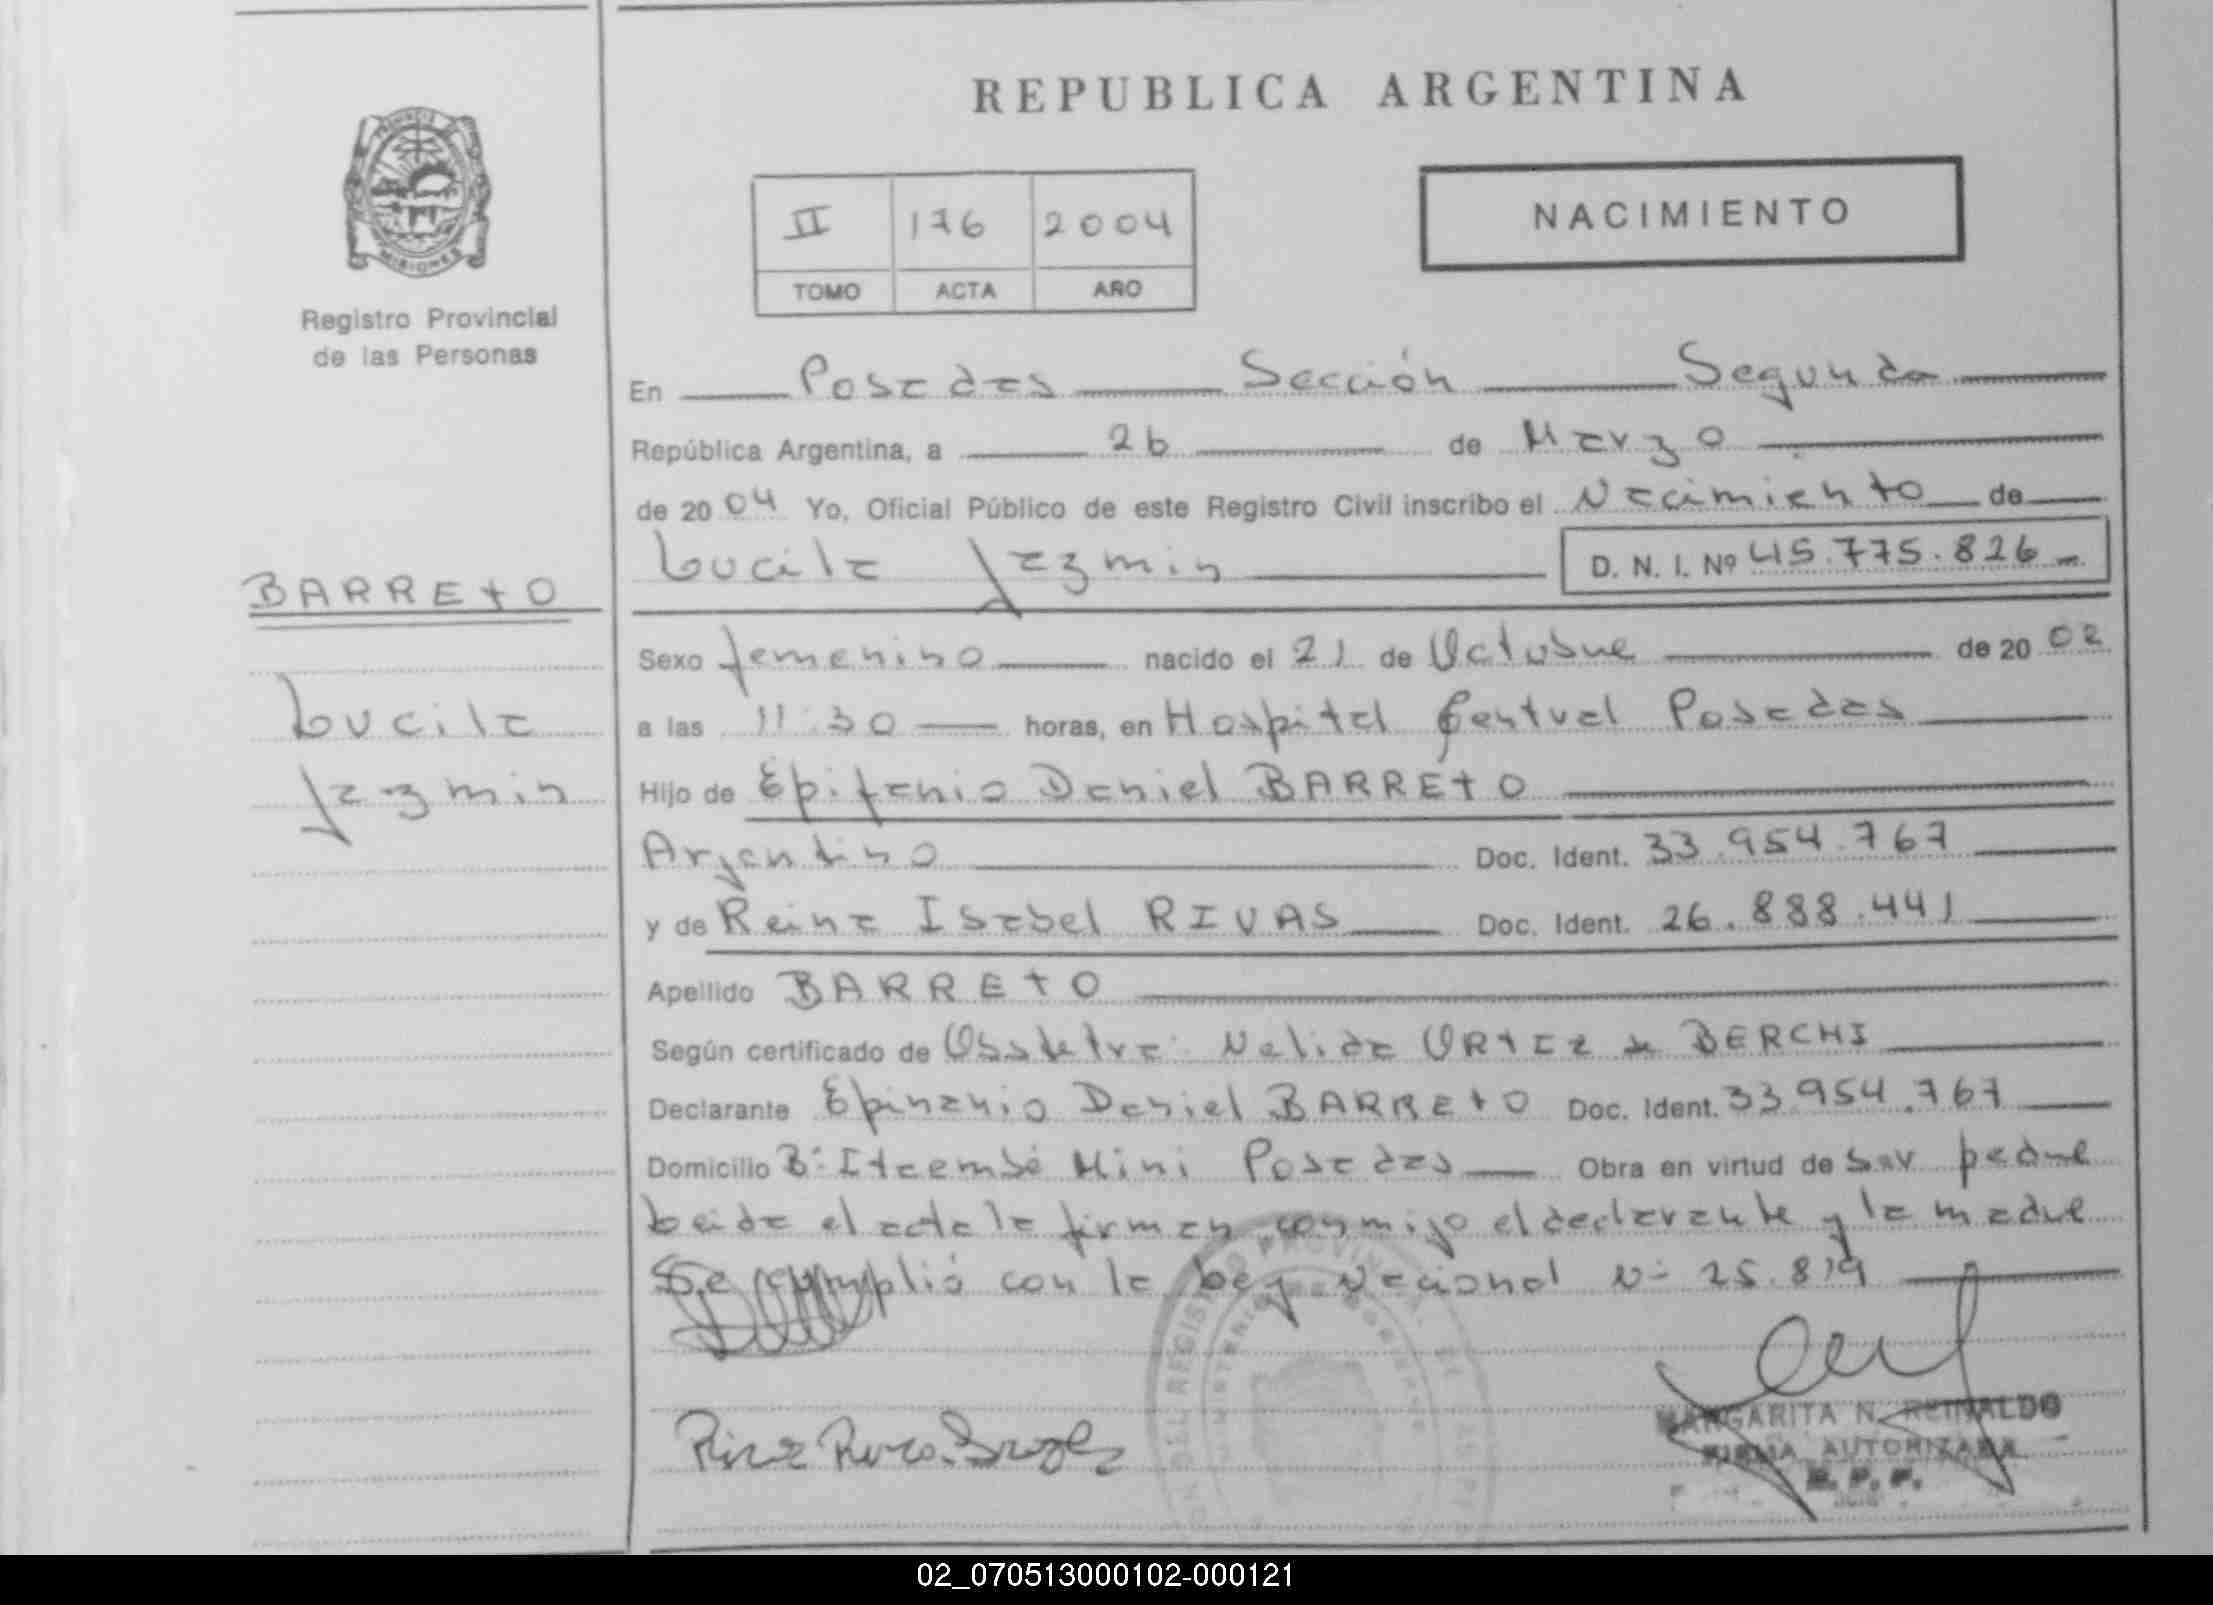 REPUBLICA ARGENTINA
PROVINCIA DE
MISIONES
Registro Provincial
de las Personas
II 176 2004
TOMO ACTA AÑO
NACIMIENTO
En Posadas Sección Segunda
República Argentina, a 26 de Marzo
de 2004 Yo, Oficial Público de este Registro Civil inscribo el Nacimiento de
Lucila Jazmin D. N. I. Nº 45.775.826
BARRETO
Lucila
Jazmin
Sexo femenino nacido el 21 de Octubre de 2002
a las 11:30 horas, en Hospital Central Posadas
Hijo de Epifanio Daniel BARRETO
Argentino Doc. Ident. 33.954.767
y de Reina Isabel RIVAS Doc. Ident. 26.888.441
Apellido BARRETO
Según certificado de Obstetra Nelida ORTIZ de BERCHI
Declarante Epinanio Daniel BARRETO Doc. Ident. 33.954.767
Domicilio Bº Itaembé Mini Posadas Obra en virtud de ser padre
Leida el acta la firman conmigo el declarante y la madre
Se cumplió con la Ley Nacional Nº 25.819
MARGARITA N. REINALDO
FIRMA AUTORIZADA
R. P. P.
02_070513000102-000121